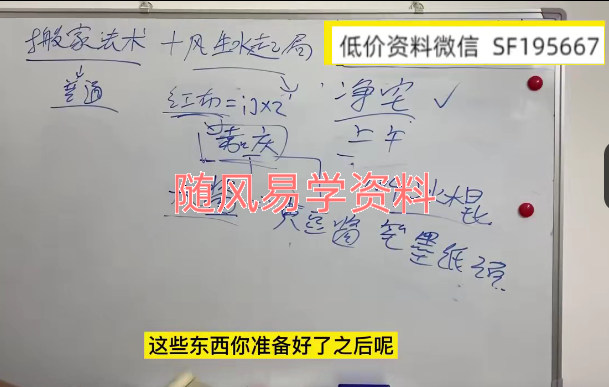 搬家法术 + 风生水起局
低价资料微信 SF195667
普通
红布=门x2
净宅 ✓
上午
随风易学资料
黄豆酱 笔墨纸
这些东西你准备好了之后呢